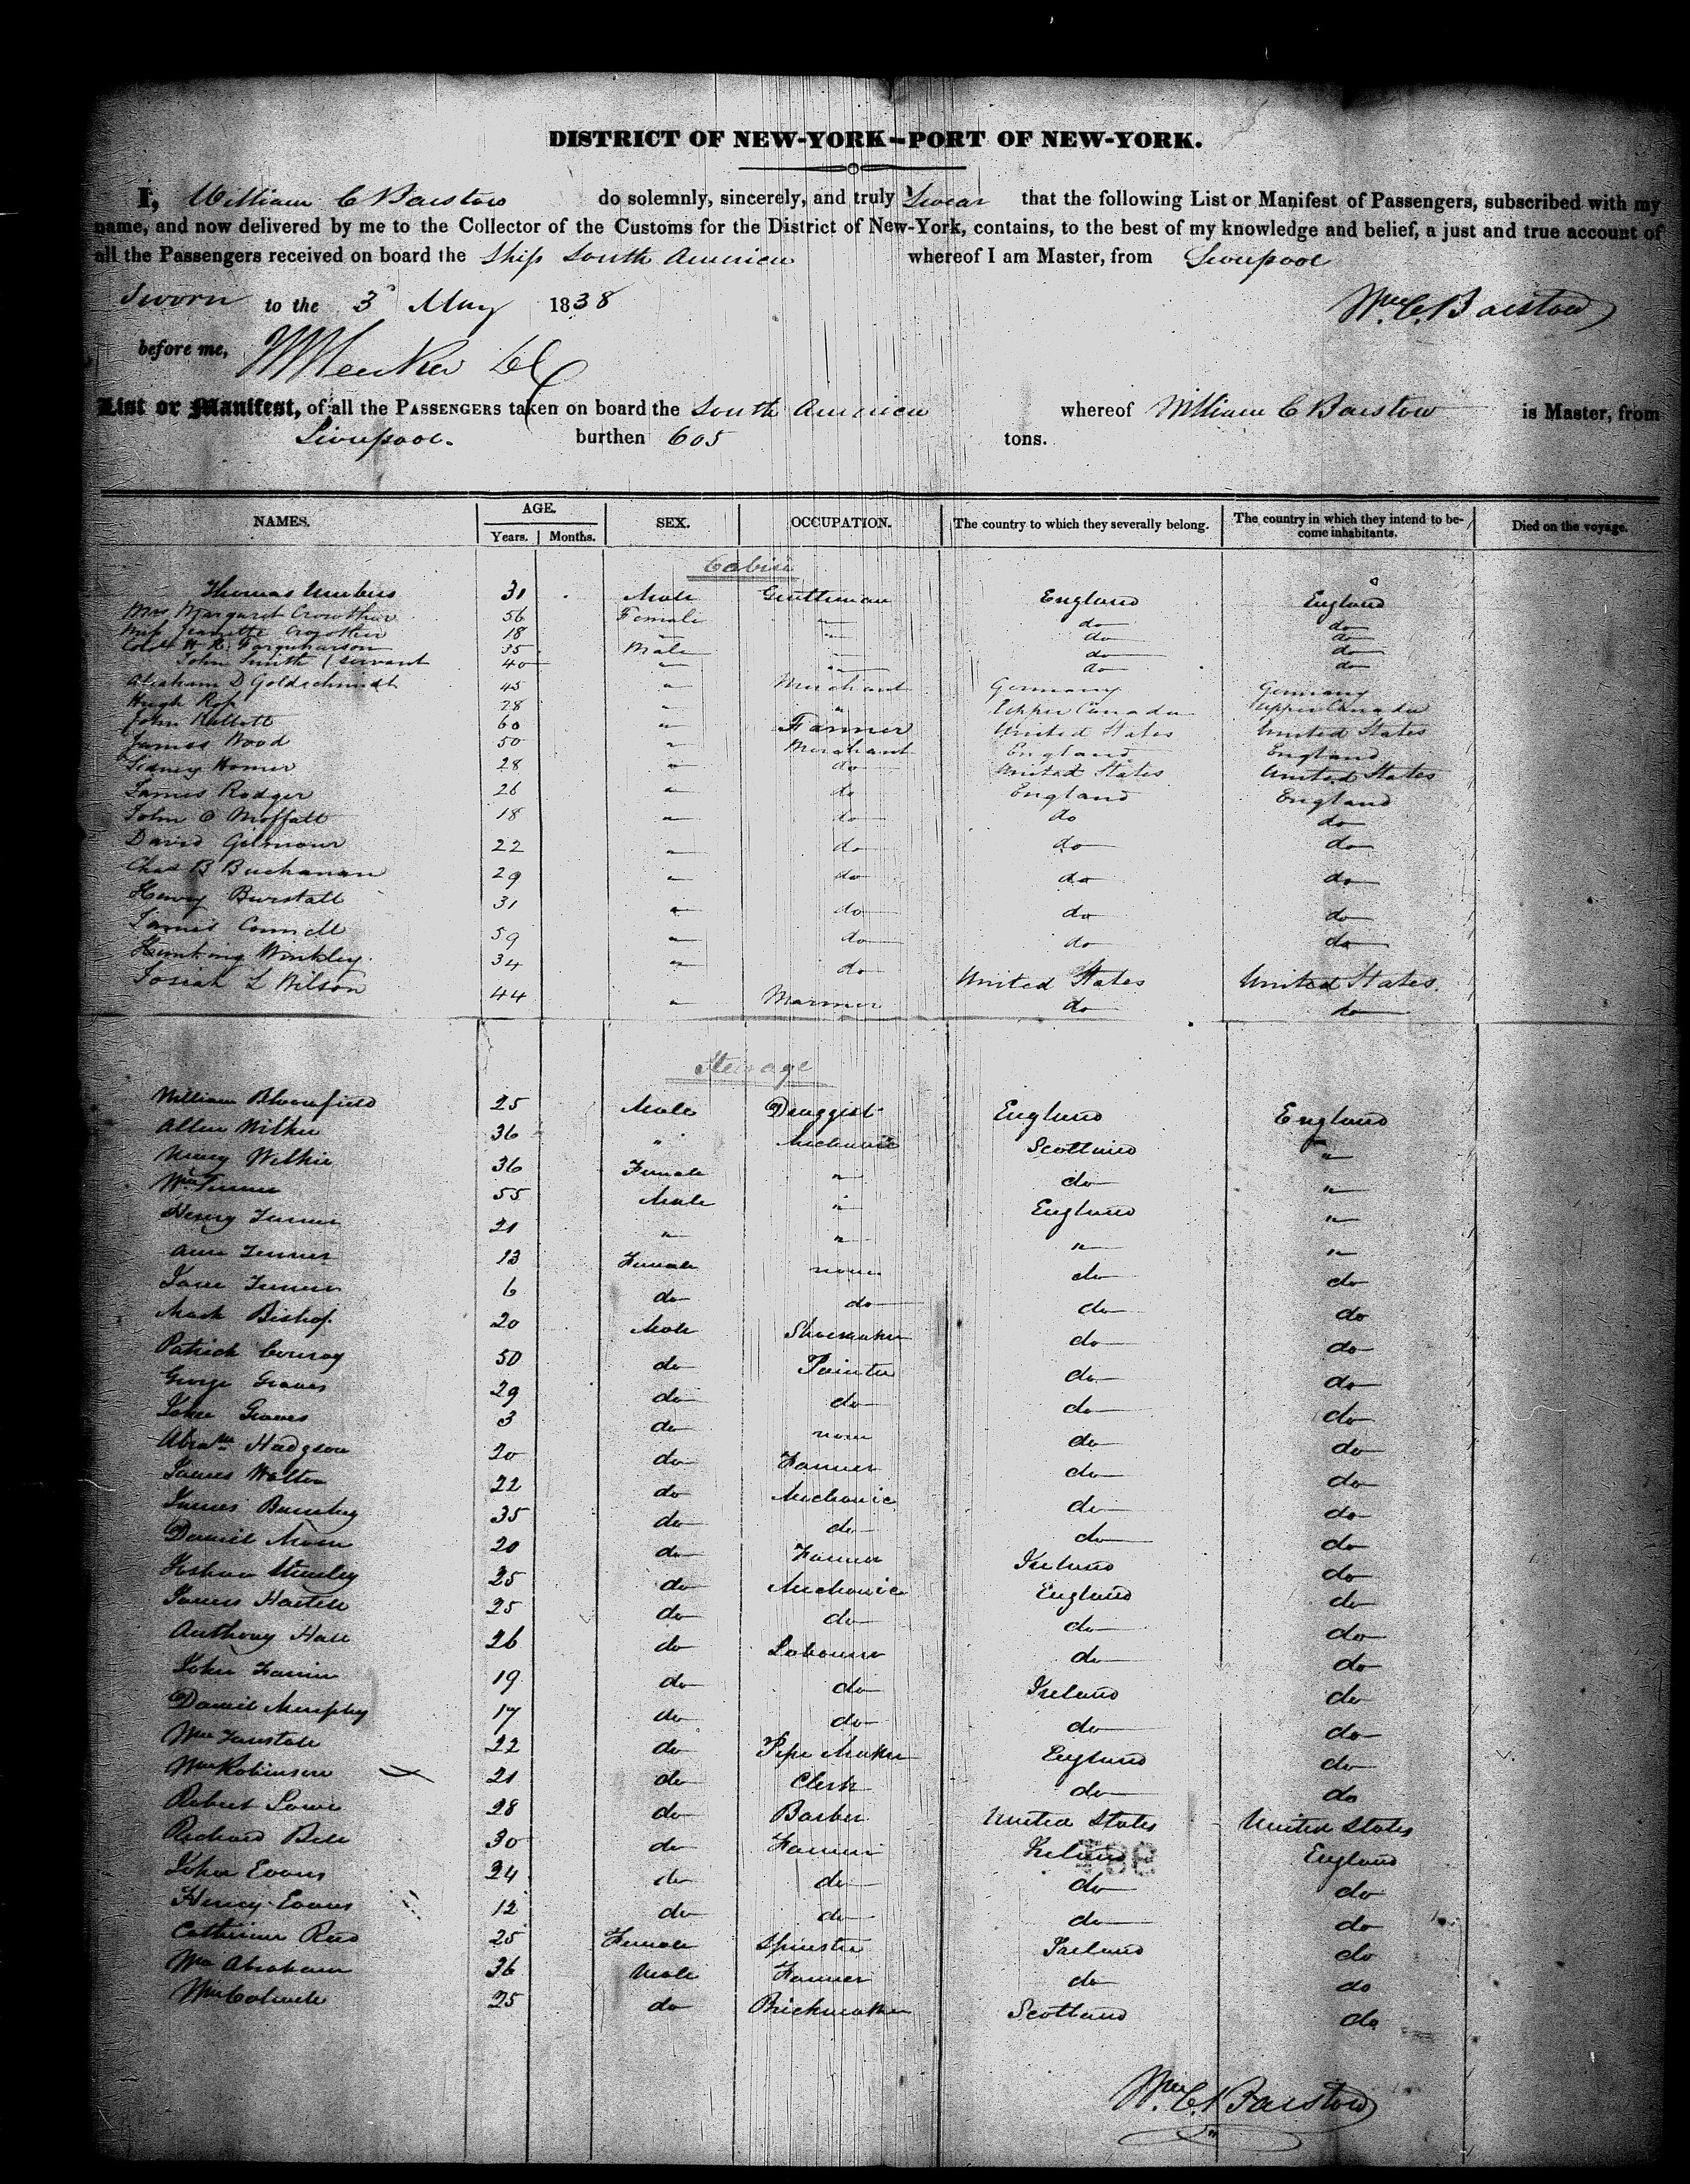 DISTRICT OF NEW-YORK—PORT OF NEW-YORK.
I, William C Barstow do solemnly, sincerely, and truly Swear that the following List or Manifest of Passengers, subscribed with my
name, and now delivered by me to the Collector of the Customs for the District of New-York, contains, to the best of my knowledge and belief, a just and true account of
all the Passengers received on board the Ship South America whereof I am Master, from Liverpool
Sworn to the 3d May 1838 Wm. C. Barstow
before me,
List or Manifest, of all the PASSENGERS taken on board the South America whereof William C Barstow is Master, from
Liverpool. burthen 605 tons.
NAMES. AGE. Years. Months. SEX. OCCUPATION. The country to which they severally belong. The country in which they intend to become inhabitants. Died on the voyage.
Cabin
Thomas 31 Male Gentleman England England
Mrs Margaret Crowther 56 Female " do do
Miss Jeanette Crowther 18 " " do do
Coll H Farquharson 35 Male " do do
John Smith (servant 40 " " do do
Abraham D Goldschmidt 45 " Merchant Germany Germany
Hugh Ross 28 " " Upper Canada Upper Canada
John 60 " Farmer United States United States
James Wood 50 " Merchant England England
Sidney Homer 28 " do United States United States
James Rodger 26 " do England England
John O Moffatt 18 " do do do
David Gilmour 22 " do do do
Chas B Buchanan 29 " do do do
Henry Burstall 31 " do do do
James Connell 59 " do do do
Winkley 34 " do United States United States.
Josiah L Wilson 44 " Mariner do do
Steerage
William Bloomfield 25 Male Druggist England England
Allen Wilkie 36 " Mechanic Scotland "
Wilkie 36 Female " do "
Wm Turner 55 Male " England "
Henry Turner 21 " " " "
Ann Turner 13 Female none do do
Jane Turner 6 do do do do
Mark Bishop 20 Male Shoemaker do do
Patrick Conroy 50 do Painter do do
George Graves 29 do do do do
John Graves 3 do none do do
Abram Hodgson 20 do Farmer do do
James Walton 22 do Mechanic do do
James 35 do do do do
Daniel 20 do Farmer Ireland do
25 do Mechanic England do
James 25 do do do do
Anthony Hall 26 do Labourer do do
John 19 do do Ireland do
Daniel Murphy 17 do do do do
Wm 22 do Pipe Maker England do
Wm Robinson 21 do Clerk do do
Robert Lowe 28 do Barber United States United States
Richard Bell 30 do Farmer Ireland England
John Evans 24 do do do do
Henry Evans 12 do do do do
Catherine Reed 25 Female Spinster Ireland do
Wm Abraham 36 Male Farmer do do
Wm 25 do Brickmaker Scotland do
Wm. C. Barstow